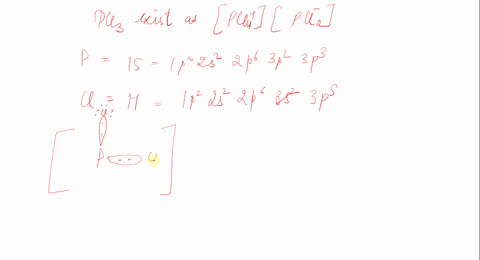 PCl3 exist as [PCl4+] [PCl6-]
P = 15 = 1p² 2s² 2p⁶ 3p² 3p³
Cl = 17 = 1p² 2s² 2p⁶ 3s² 3p⁵
Cl
P Cl